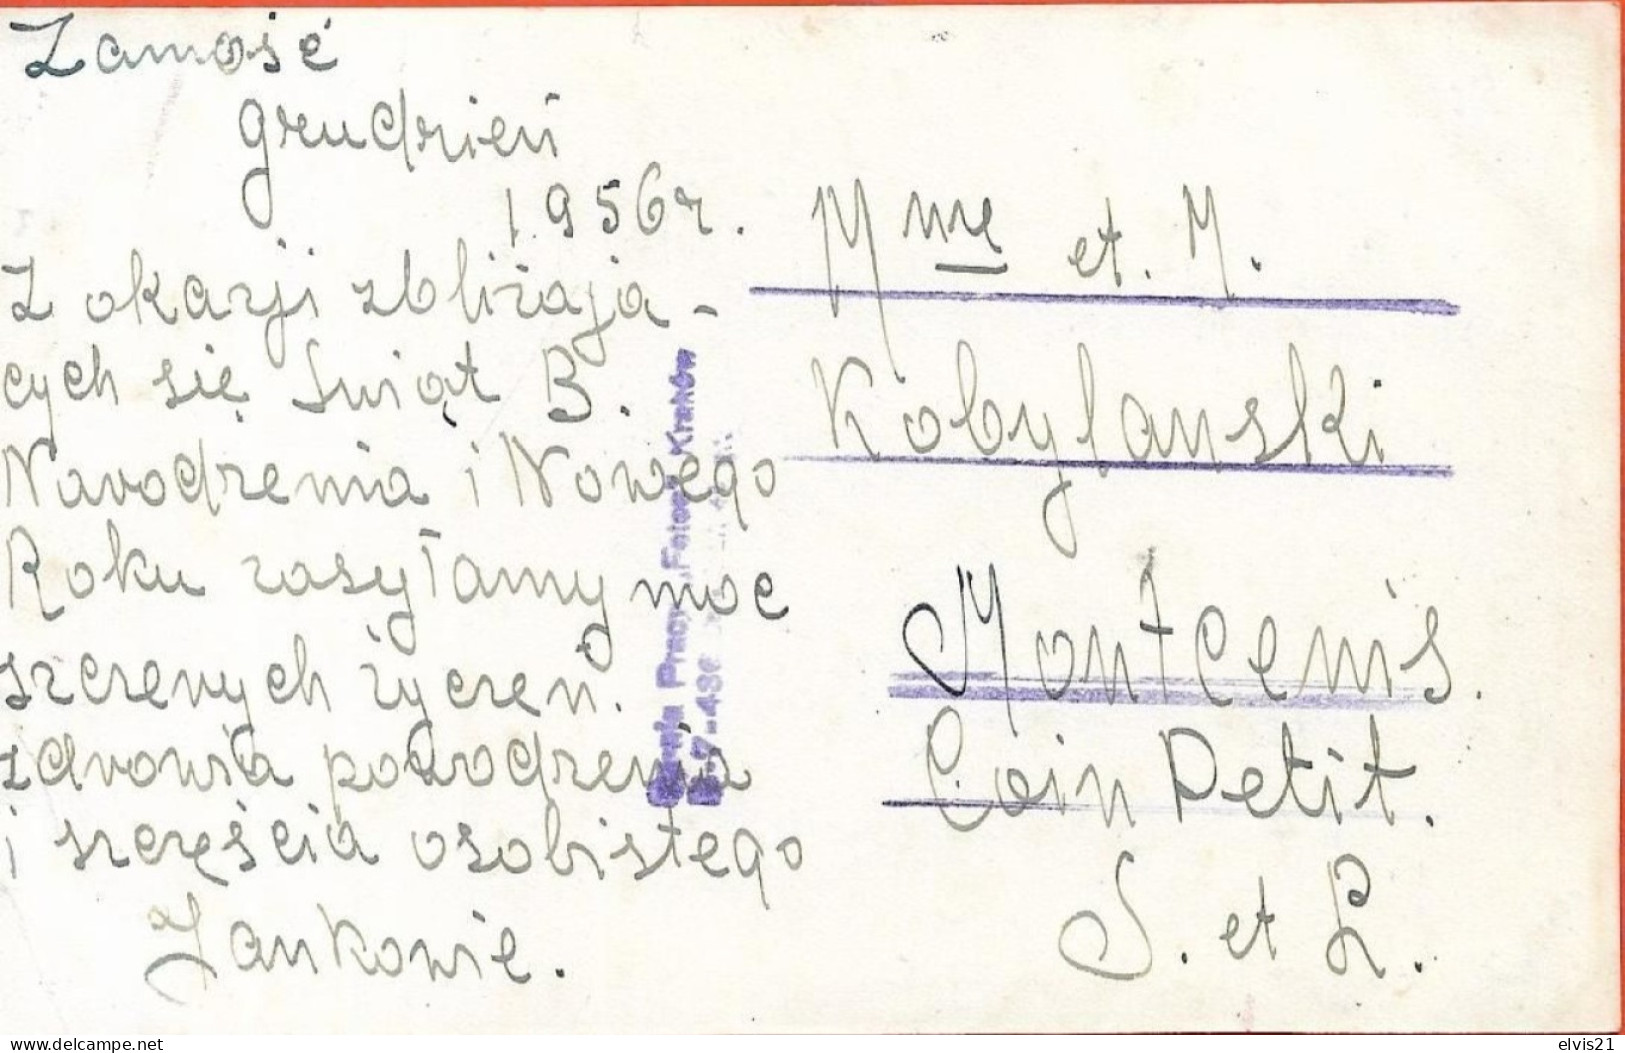 Zamość
grudzień
1956 r.
Z okazji zbliżają-
cych się Świąt B.
Narodzenia i Nowego
Roku zasyłamy moc
szczerych życzeń.
zdrowia powodzenia
i szczęścia osobistego
Jankowie.
Mme et. M.
Kobylanski
Montcenis.
Coin Petit.
S. et L.
Pracy Fotogr. Kraków
elvis21